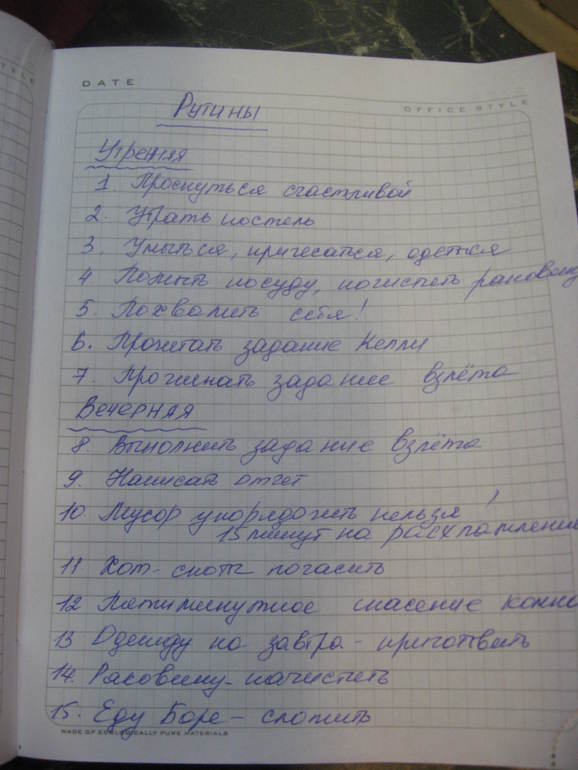 DATE
OFFICE STYLE
Рутины
Утренняя
1. Проснуться счастливой
2. Убрать постель
3. Умыться, причесаться, одеться
4 Помыть посуду, почистить раковину
5. Похвалить себя!
6. Прочитать задание Келли
7. Прочитать задание взлёта
Вечерняя
8. Выполнить задание взлёта
9. Написать отчет
10. Мусор упорядочить нельзя!
15 минут на расхламление
11 Хот-спот погасить
12 Пятиминутное спасение комна
13 Одежду на завтра - приготовить
14. Раковину - начистить
15. Еду Боре - сложить
MADE OF ECOLOGICALLY PURE MATERIALS